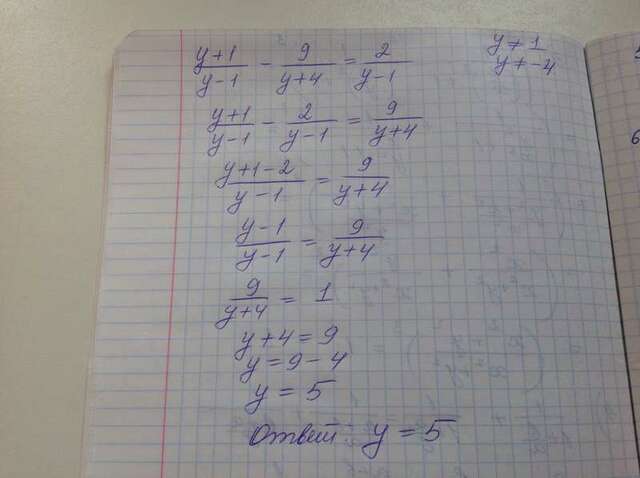 (y+1)/(y-1) - 9/(y+4) = 2/(y-1)
y ≠ 1
y ≠ -4
(y+1)/(y-1) - 2/(y-1) = 9/(y+4)
(y+1-2)/(y-1) = 9/(y+4)
(y-1)/(y-1) = 9/(y+4)
9/(y+4) = 1
y+4=9
y=9-4
y = 5
Ответ y = 5
6